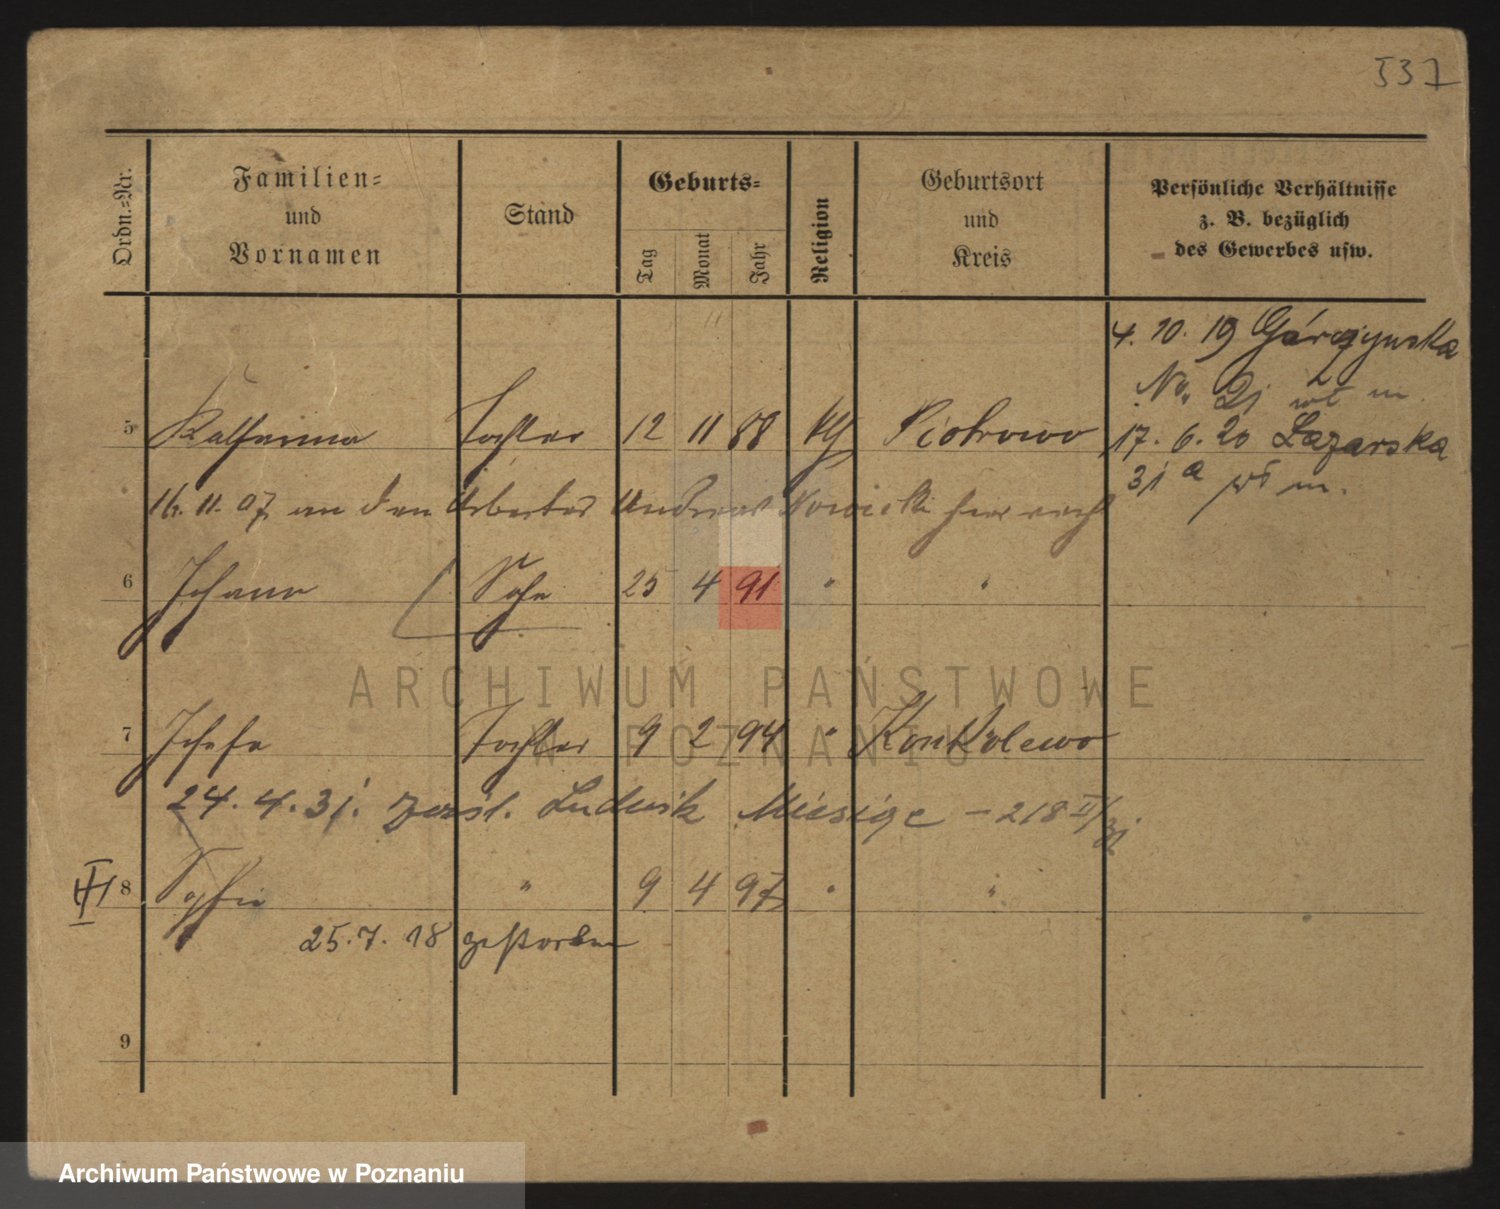 537
Ordn.-Nr.
Familien-
und
Vornamen
Stand
Geburts-
Tag
Monat
Jahr
Religion
Geburtsort
und
Kreis
Persönliche Verhältnisse
z. B. bezüglich
des Gewerbes usw.
4. 10. 19 Górczynska
No. 21 m.
5 Katharina Tochter 12 11 88 kth Piotrowo 17. 6. 20 Łazarska
31 a m.
16. 11. 07 an den Arbeiter Andreas Nowicki hier verh
6 Johann Sohn 25 4 91 " "
7 Josefa Tochter 9 2 94 " Konkolewo
24. 4. 31. zaśl. Ludwik - 218 II/31
8 Sophie " 9 4 97 " "
25. 7. 18 gestorben
9
ARCHIWUM PAŃSTWOWE
W POZNANIU
Archiwum Państwowe w Poznaniu